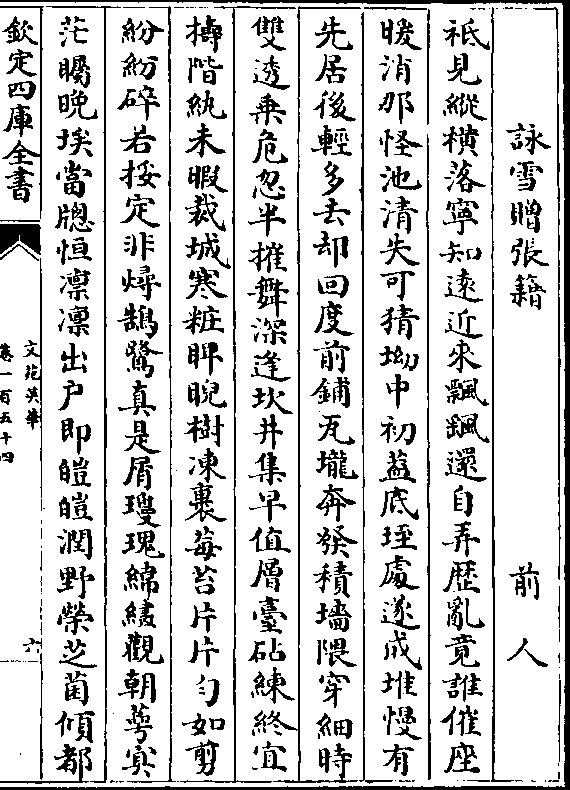 詠雪贈張籍 前人
祗見縱橫落寧知逺近來飄飖還自弄歴亂竟誰催座
暖消那怪池清失可猜坳中初葢底垤處遂成堆慢有
先居後輕多去却回度前鋪瓦壠奔發積墻隈穿細時
雙透乗危忽半摧舞深逢坎井集早值層臺砧練終宜
擣階紈未暇裁城寒粧睥睨樹凍裹莓苔片片勻如剪
紛紛碎若挼定非燖鵠鷺真是屑瓊瑰綿觀朝萼冥
茫矚晩埃當牕恒凛凛出户即皚皚潤野榮芝菌傾都
欽定四庫全書
文苑英華
卷一百五十四
六